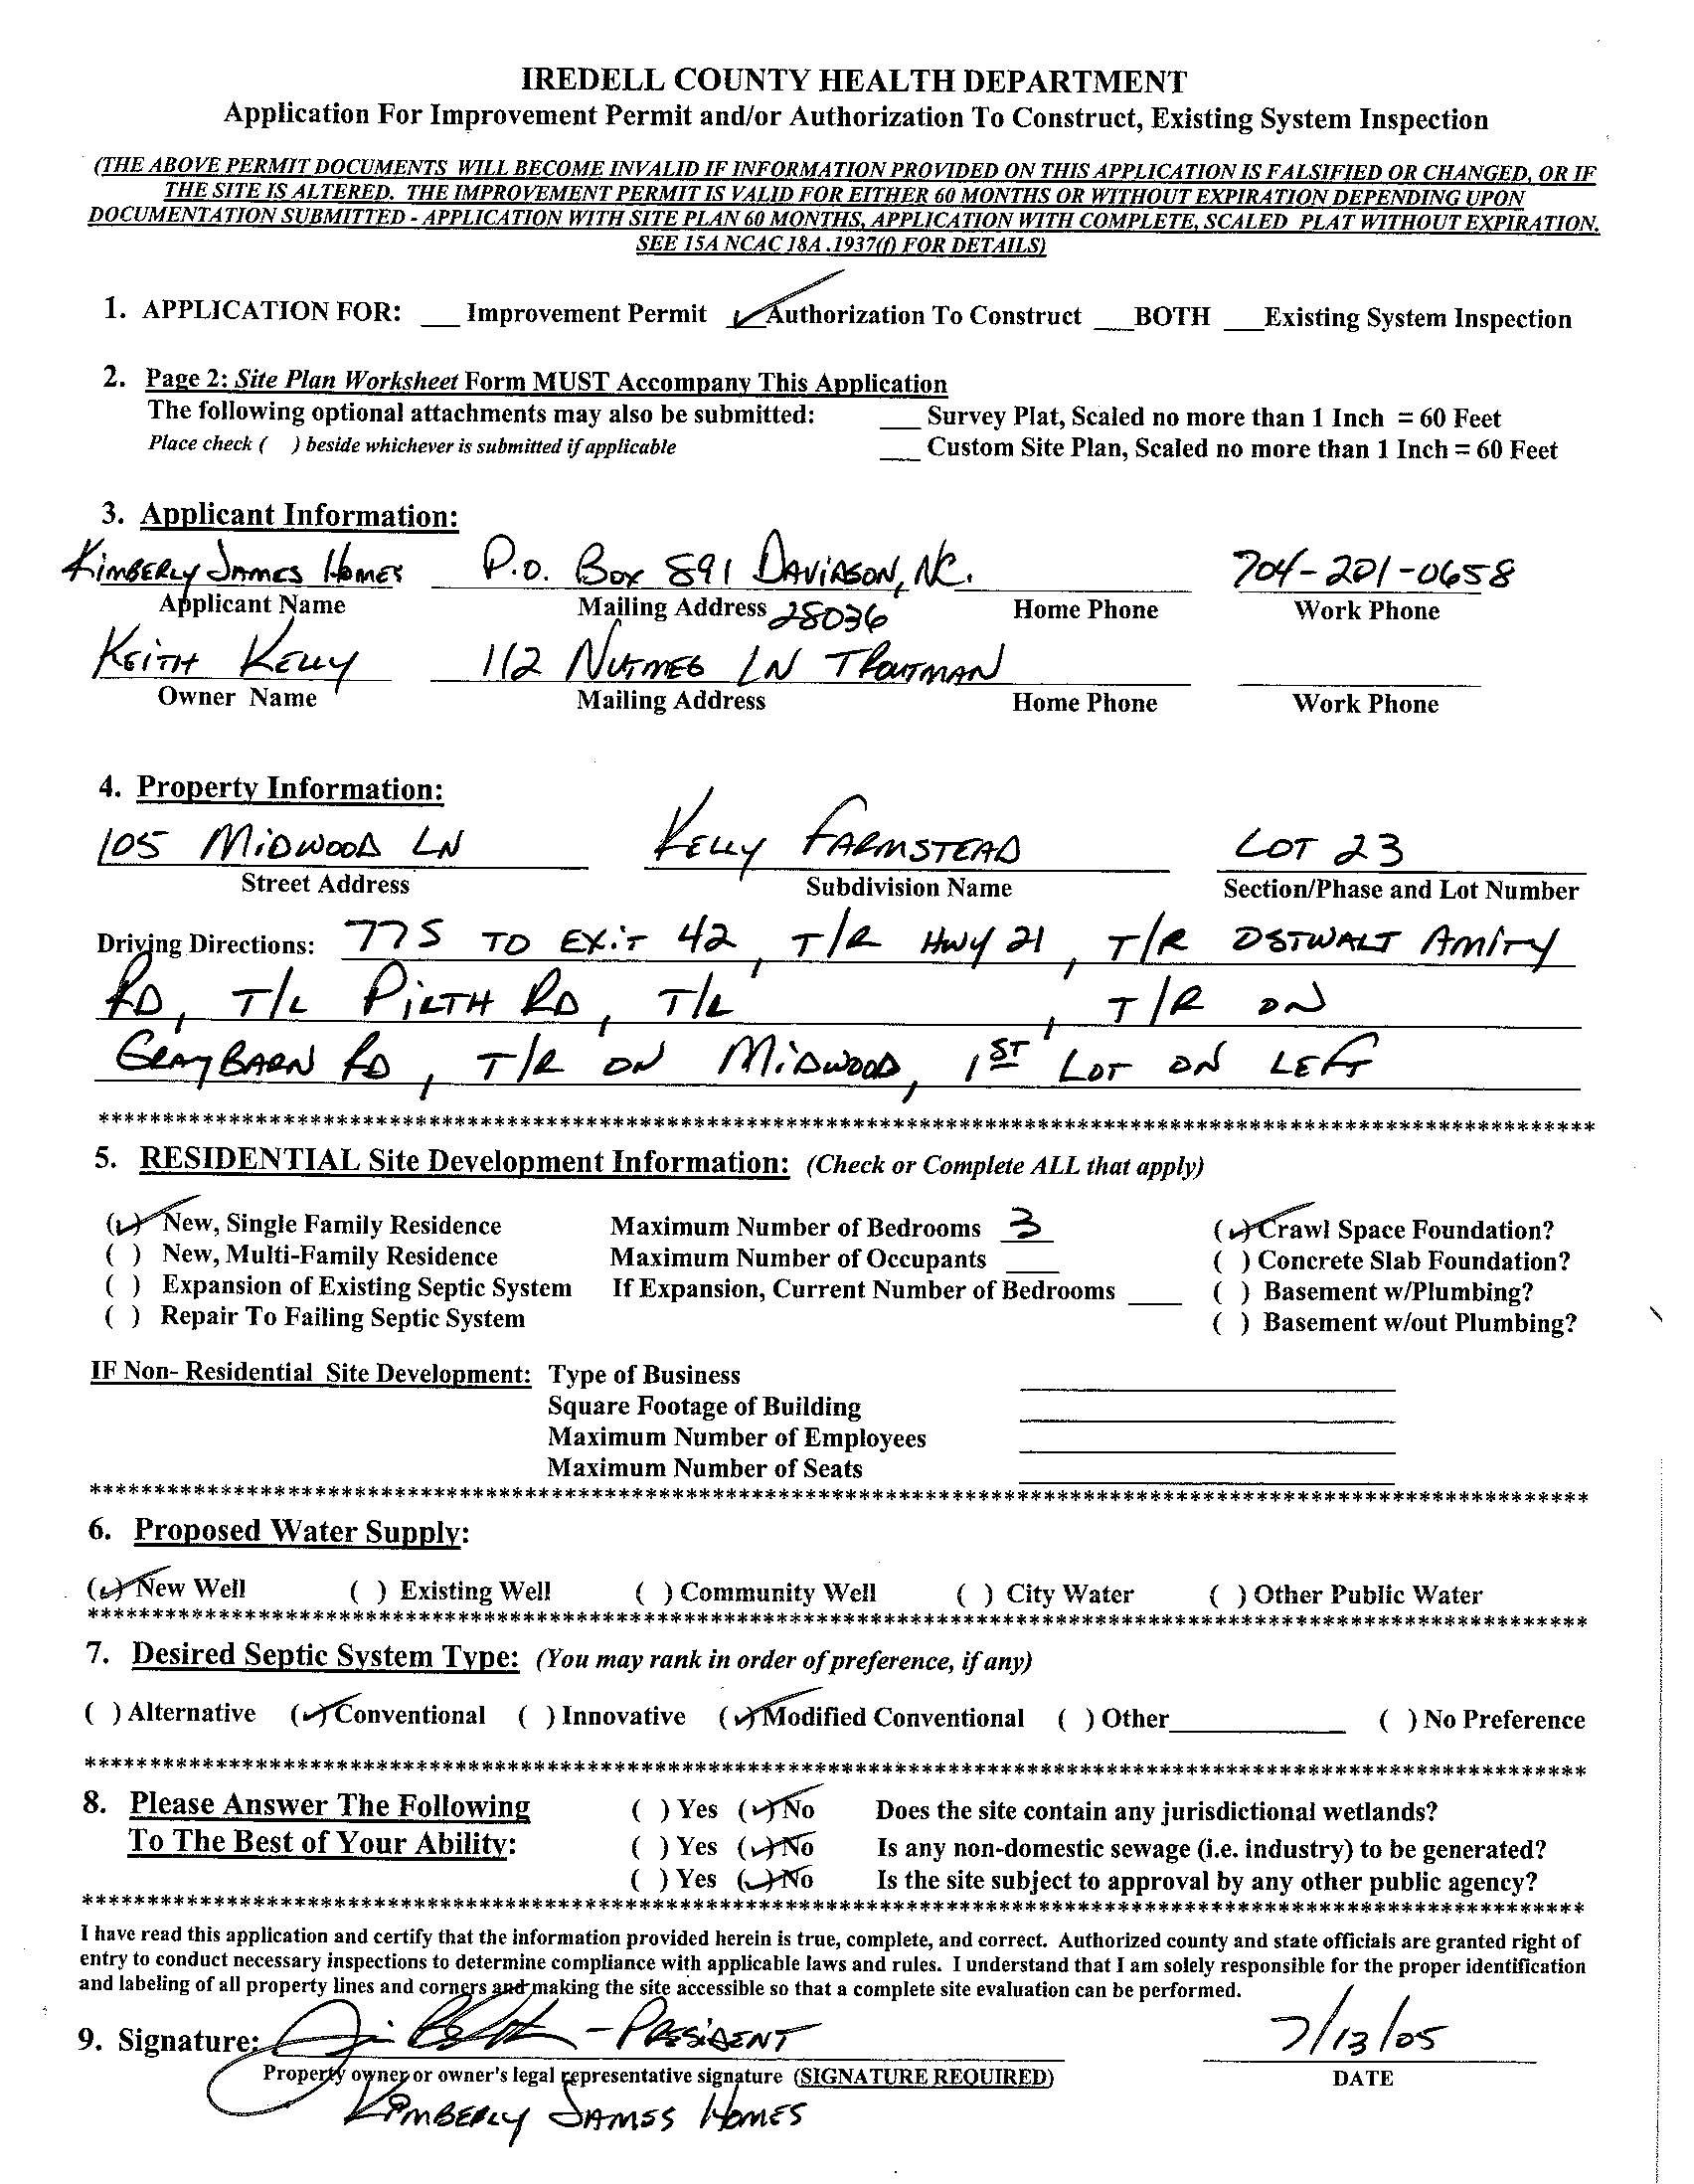 IREDELL COUNTY HEALTH DEPARTMENT
Application For Improvement Permit and/or Authorization To Construct, Existing System Inspection
(THE ABOVE PERMIT DOCUMENTS WILL BECOME INVALID IF INFORMATION PROVIDED ON THIS APPLICATION IS FALSIFIED OR CHANGED, OR IF
THE SITE IS ALTERED. THE IMPROVEMENT PERMIT IS VALID FOR EITHER 60 MONTHS OR WITHOUT EXPIRATION DEPENDING UPON
DOCUMENTATION SUBMITTED - APPLICATION WITH SITE PLAN 60 MONTHS, APPLICATION WITH COMPLETE, SCALED PLAT WITHOUT EXPIRATION.
SEE 15A NCAC 18A .1937(f) FOR DETAILS)
1. APPLICATION FOR: ___ Improvement Permit ✓ Authorization To Construct ___BOTH ___Existing System Inspection
2. Page 2: Site Plan Worksheet Form MUST Accompany This Application
The following optional attachments may also be submitted: ___ Survey Plat, Scaled no more than 1 Inch = 60 Feet
Place check ( ) beside whichever is submitted if applicable ___ Custom Site Plan, Scaled no more than 1 Inch = 60 Feet
3. Applicant Information:
KIMBERLY JAMES HOMES P.O. BOX 891 DAVIDSON, NC. 704-201-0658
Applicant Name Mailing Address 28036 Home Phone Work Phone
KEITH KELLY 112 NUTMEG LN TROUTMAN
Owner Name Mailing Address Home Phone Work Phone
4. Property Information:
105 MIDWOOD LN KELLY FARMSTEAD LOT 23
Street Address Subdivision Name Section/Phase and Lot Number
Driving Directions: 77S TO EXIT 42, T/R HWY 21, T/R OSTWALT AMITY
RD, T/L PILTH RD, T/L , T/R ON
GRAYBARN RD, T/R ON MIDWOOD, 1ST LOT ON LEFT
********************************************************************************
5. RESIDENTIAL Site Development Information: (Check or Complete ALL that apply)
(✓) New, Single Family Residence Maximum Number of Bedrooms 3 (✓) Crawl Space Foundation?
( ) New, Multi-Family Residence Maximum Number of Occupants ___ ( ) Concrete Slab Foundation?
( ) Expansion of Existing Septic System If Expansion, Current Number of Bedrooms ___ ( ) Basement w/Plumbing?
( ) Repair To Failing Septic System ( ) Basement w/out Plumbing?
IF Non- Residential Site Development: Type of Business
Square Footage of Building
Maximum Number of Employees
Maximum Number of Seats
********************************************************************************
6. Proposed Water Supply:
(✓) New Well ( ) Existing Well ( ) Community Well ( ) City Water ( ) Other Public Water
********************************************************************************
7. Desired Septic System Type: (You may rank in order of preference, if any)
( ) Alternative (✓) Conventional ( ) Innovative (✓) Modified Conventional ( ) Other___ ( ) No Preference
********************************************************************************
8. Please Answer The Following ( ) Yes (✓) No Does the site contain any jurisdictional wetlands?
To The Best of Your Ability: ( ) Yes (✓) No Is any non-domestic sewage (i.e. industry) to be generated?
( ) Yes (✓) No Is the site subject to approval by any other public agency?
********************************************************************************
I have read this application and certify that the information provided herein is true, complete, and correct. Authorized county and state officials are granted right of
entry to conduct necessary inspections to determine compliance with applicable laws and rules. I understand that I am solely responsible for the proper identification
and labeling of all property lines and corners and making the site accessible so that a complete site evaluation can be performed.
9. Signature: - PRESIDENT 7/13/05
Property owner or owner's legal representative signature (SIGNATURE REQUIRED) DATE
KIMBERLY JAMES HOMES